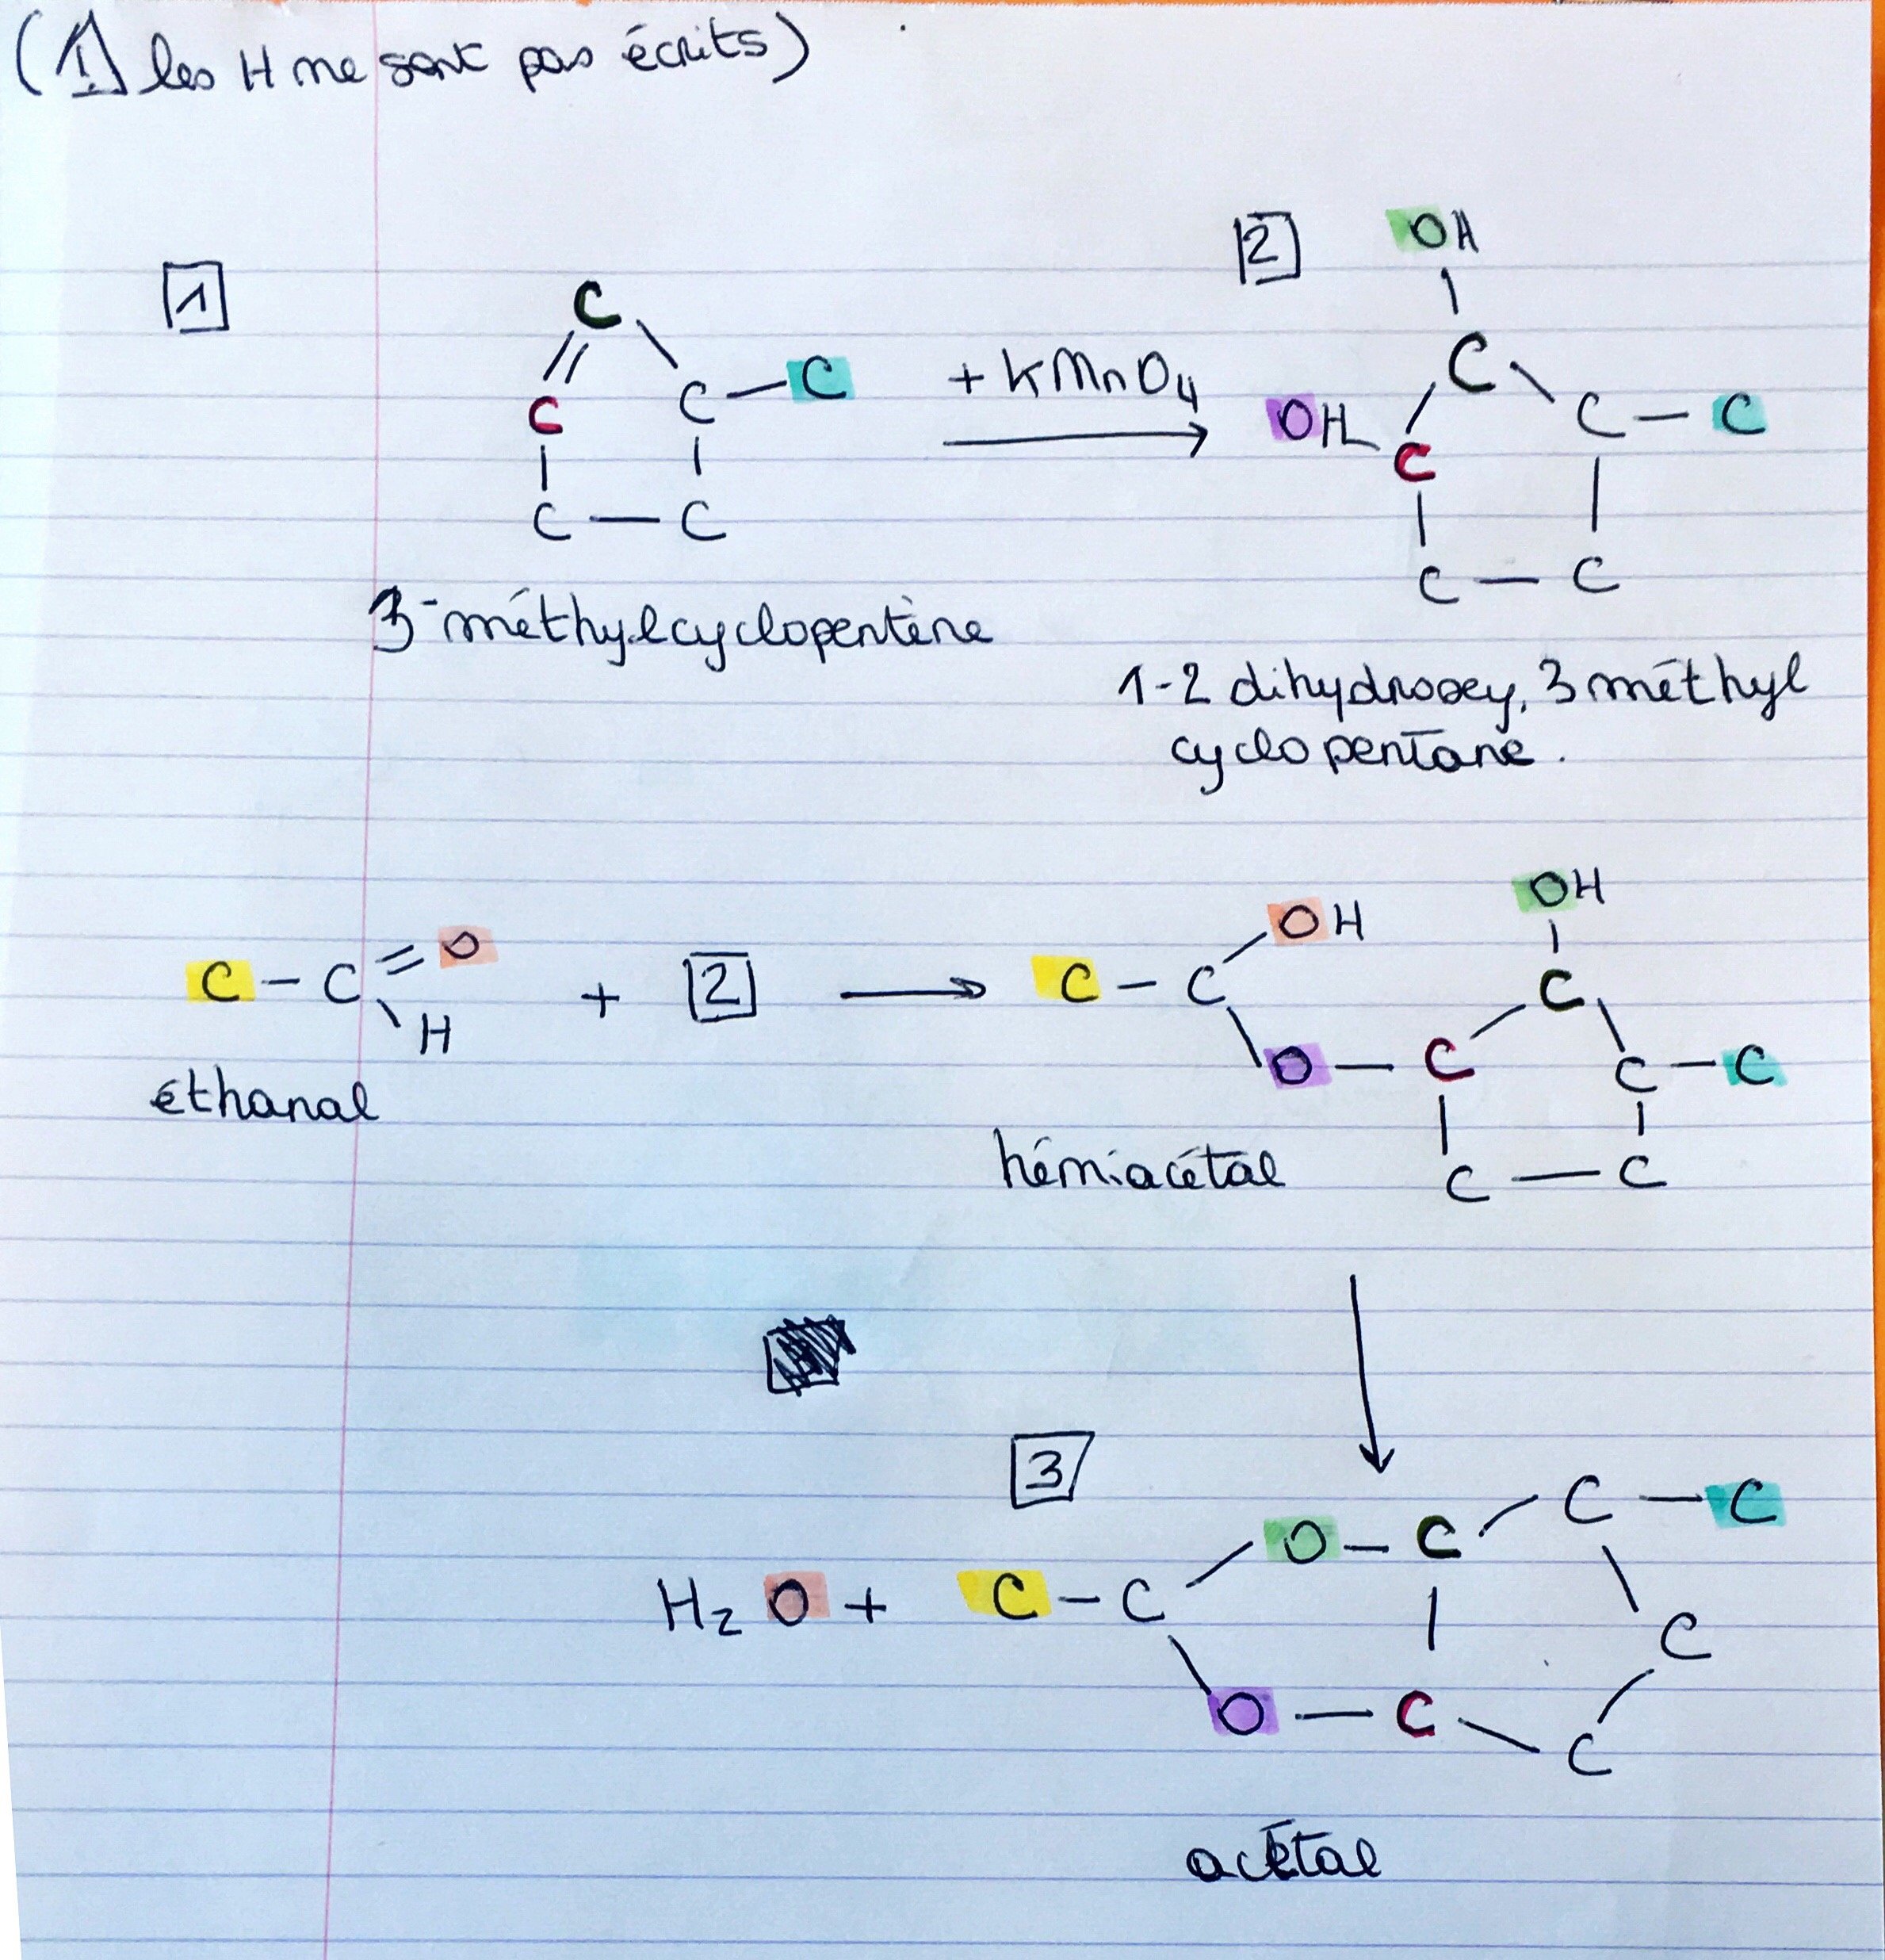 (⚠ les H ne sont pas écrits)
1
C
C
C – C
C – C
3-méthylcyclopentène
+ KMnO4
2
OH
C
OH C
C – C
C – C
1-2 dihydroxy, 3 méthyl
cyclopentane.
C – C = O
H
éthanal
+ 2
C – C
OH
O – C
OH
C
C – C
C – C
hémiacétal
3
H2O +
C – C
O – C
C – C
C
O – C
C
acétal